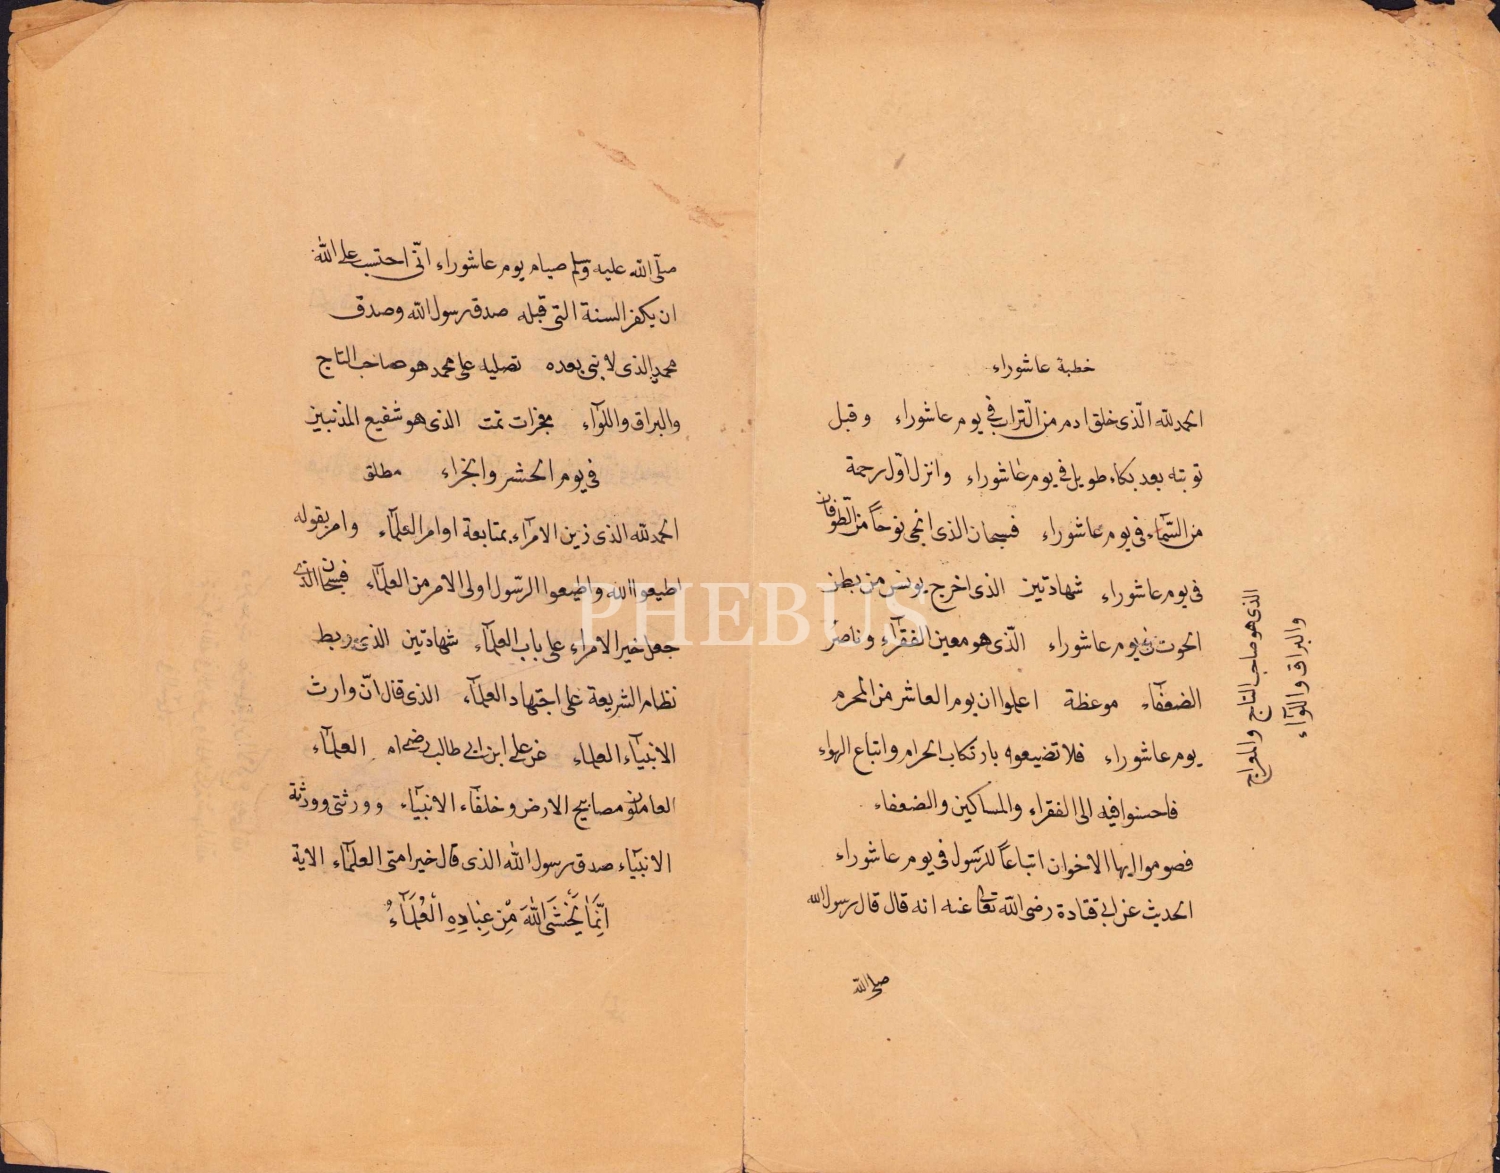 خطبة عاشوراء
الحمد لله الّذى خلق ادم من التّراب فى يوم عاشوراء وقبل
توبته بعد بكاء طويل فى يوم عاشوراء وانزل اوّل رحمة
من السّماء فى يوم عاشوراء فسبحان الذى انجى نوحاً من الطّوفان
فى يوم عاشوراء شهادتين الذى اخرج يونس من بطن
الحوت فى يوم عاشوراء الّذى هو معين الفقرآء وناصر
الضعفآء موعظة اعلموا ان يوم العاشر من المحرم
يوم عاشوراء فلا تضيعوه بارتكاب الحرام واتباع الهواء
فاحسنوا فيه الى الفقراء والمساكين والضعفاء
فصوموا ايها الاخوان اتباعاً للرّسول فى يوم عاشوراء
الحديث عن ابى قتادة رضى الله تعالى عنه انه قال قال رسول الله
صلى الله
الذى هو صاحب التاج والمعراج
والبراق واللوآء
صلّى الله عليه وسلم صيام يوم عاشوراء انّى احتسب على الله
ان يكفر السنة التى قبله صدق رسول الله وصدق
محمد الذى لا نبى بعده تصليه على محمد هو صاحب التاج
والبراق واللوآء معجزات تمت الذى هو شفيع المذنبين
فى يوم الحشر والجزاء مطلق
الحمد لله الذى زين الامرآء بمتابعة اوامر العلمآء وامر بقوله
اطيعوا الله واطيعوا الرّسول اولى الامر من العلمآء فسبحان الذى
جعل خير الامراء على باب العلمآء شهادتين الذى ربط
نظام الشريعة على اجتهاد العلمآء الذى قال انّ وارث
الانبيآء العلماء عن على ابن ابى طالب رضى العلمآء
العاملون مصابيح الارض وخلفآء الانبيآء وورثتى وورثة
الانبيآء صدق رسول الله الذى قال خير امتى العلمآء الاية
اِنَّمَا يَخْشَى اللهَ مِنْ عِبَادِهِ الْعُلَمَآءُ
PHEBUS